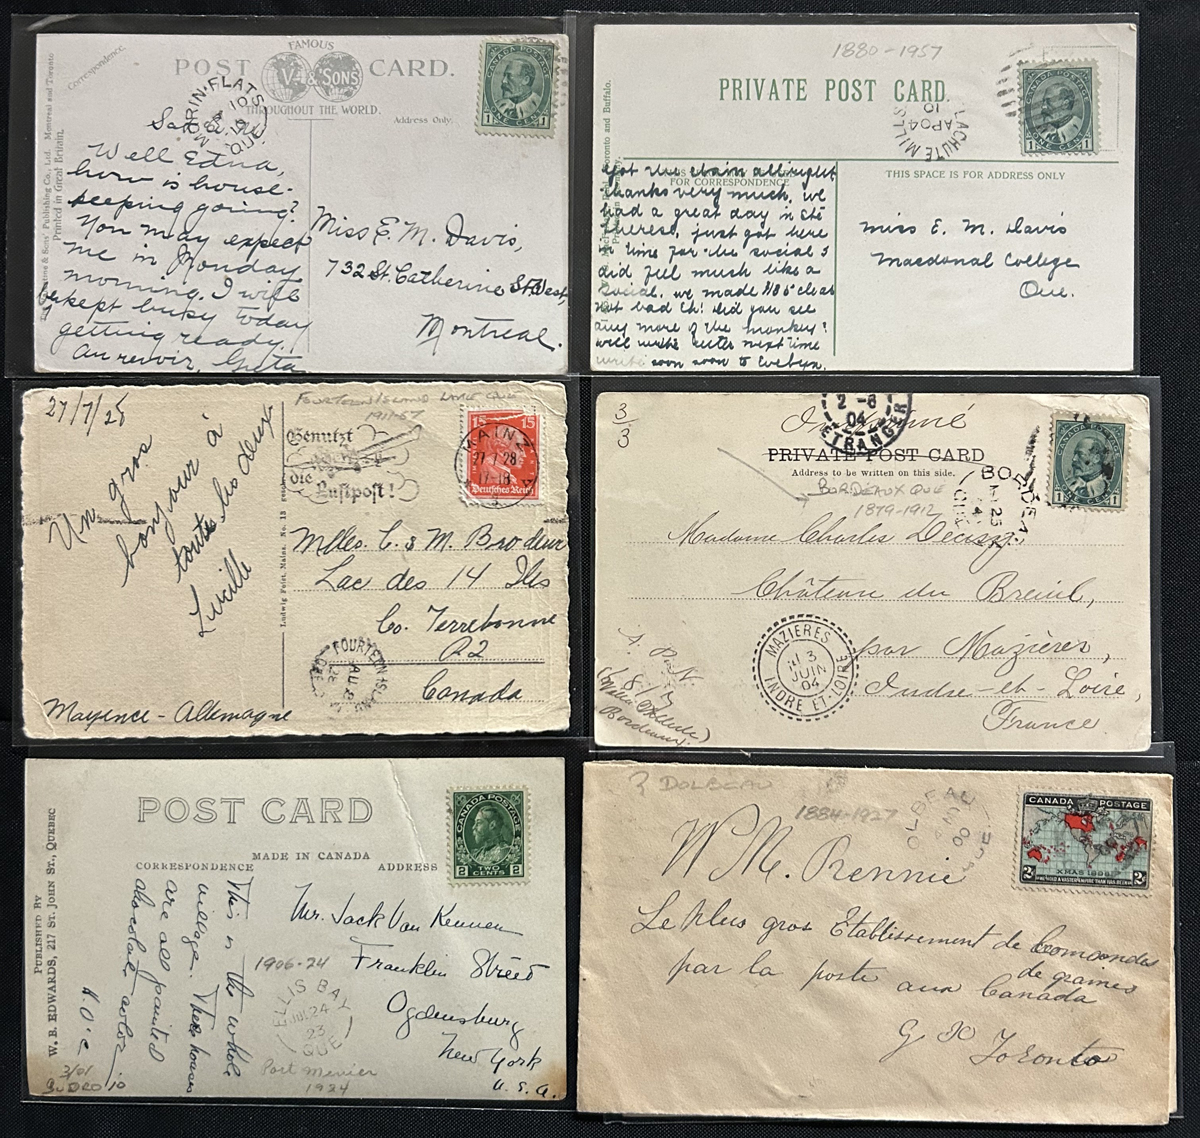 FAMOUS
POST CARD.
V. & SONS
THROUGHOUT THE WORLD.
Correspondence.
Address Only.
& Sons' Publishing Co., Ltd. Montreal and Toronto
Printed in Great Britain.
MORIN·FLATS
CANADA POSTAGE
ONE CENT
Well Edna,
how is house-
keeping going?
You may expect
me in Monday
morning. I will
be kept busy today
getting ready.
Au revoir, Greta
Miss E. M. Davis,
732 St. Catherine St. West,
Montreal.
1880-1957
PRIVATE POST CARD.
LACHUTE MILLS
AP 04
10
FOR CORRESPONDENCE
THIS SPACE IS FOR ADDRESS ONLY
Toronto and Buffalo.
Got the chain allright
thanks very much, we
had a great day in Ste
Therese, just got here
in time for the social I
did feel much like a
social. we made $185 clear
not bad eh! did you see
any more of the monkey?
will write later next time
write soon soon to Evelyn.
Miss E. M. Davis
Macdonal College
Que.
27/7/28
FOURTEEN ISLAND LAKE QUE
1911-57
Benutzt
die
Luftpost!
MAINZ
27.7.28
17-18
15 15
Deutsches Reich
Un gros
bonjour à
toutes les deux
Lucille
Ludwig Feist, Mainz. No. 13
Mlles. C. & M. Brodeur
Lac des 14 Iles
Co. Terrebonne
R2
Canada
FOURTEEN ISLAND
AU 8
28
Mayence - Allemagne
3/3
2 -6
04
ETRANGER
PRIVATE POST CARD
Address to be written on this side.
BORDEAUX QUE
1879-1912
BORDEAUX
Madame Charles Decazy
Château du Breuil,
par Mazières,
Indre-et-Loire,
France
MAZIERES
3
JUIN
04
INDRE ET-LOIRE
Bordeaux
POST CARD
MADE IN CANADA
CORRESPONDENCE
ADDRESS
PUBLISHED BY
W. B. EDWARDS, 217 ST. JOHN ST., QUEBEC
CANADA POSTAGE
2 TWO CENTS 2
This is the whole
village. These houses
are all painted
chocolate color
H.O'C
Mr. Jack Van Kennen
Franklin Street
Ogdensburg
New York
U.S.A.
1906-24
ELLIS BAY
JUL 24
23
QUE
Port Menier
1924
3/01
? DOLBEAU
1884-1927
DOLBEAU
00
QUE
CANADA POSTAGE
XMAS 1898
2c 2c
WE HOLD A VASTER EMPIRE THAN HAS BEEN
W M. Rennie
Le plus gros Etablissement de Commandes
de graines
par la poste aux Canada
Toronto